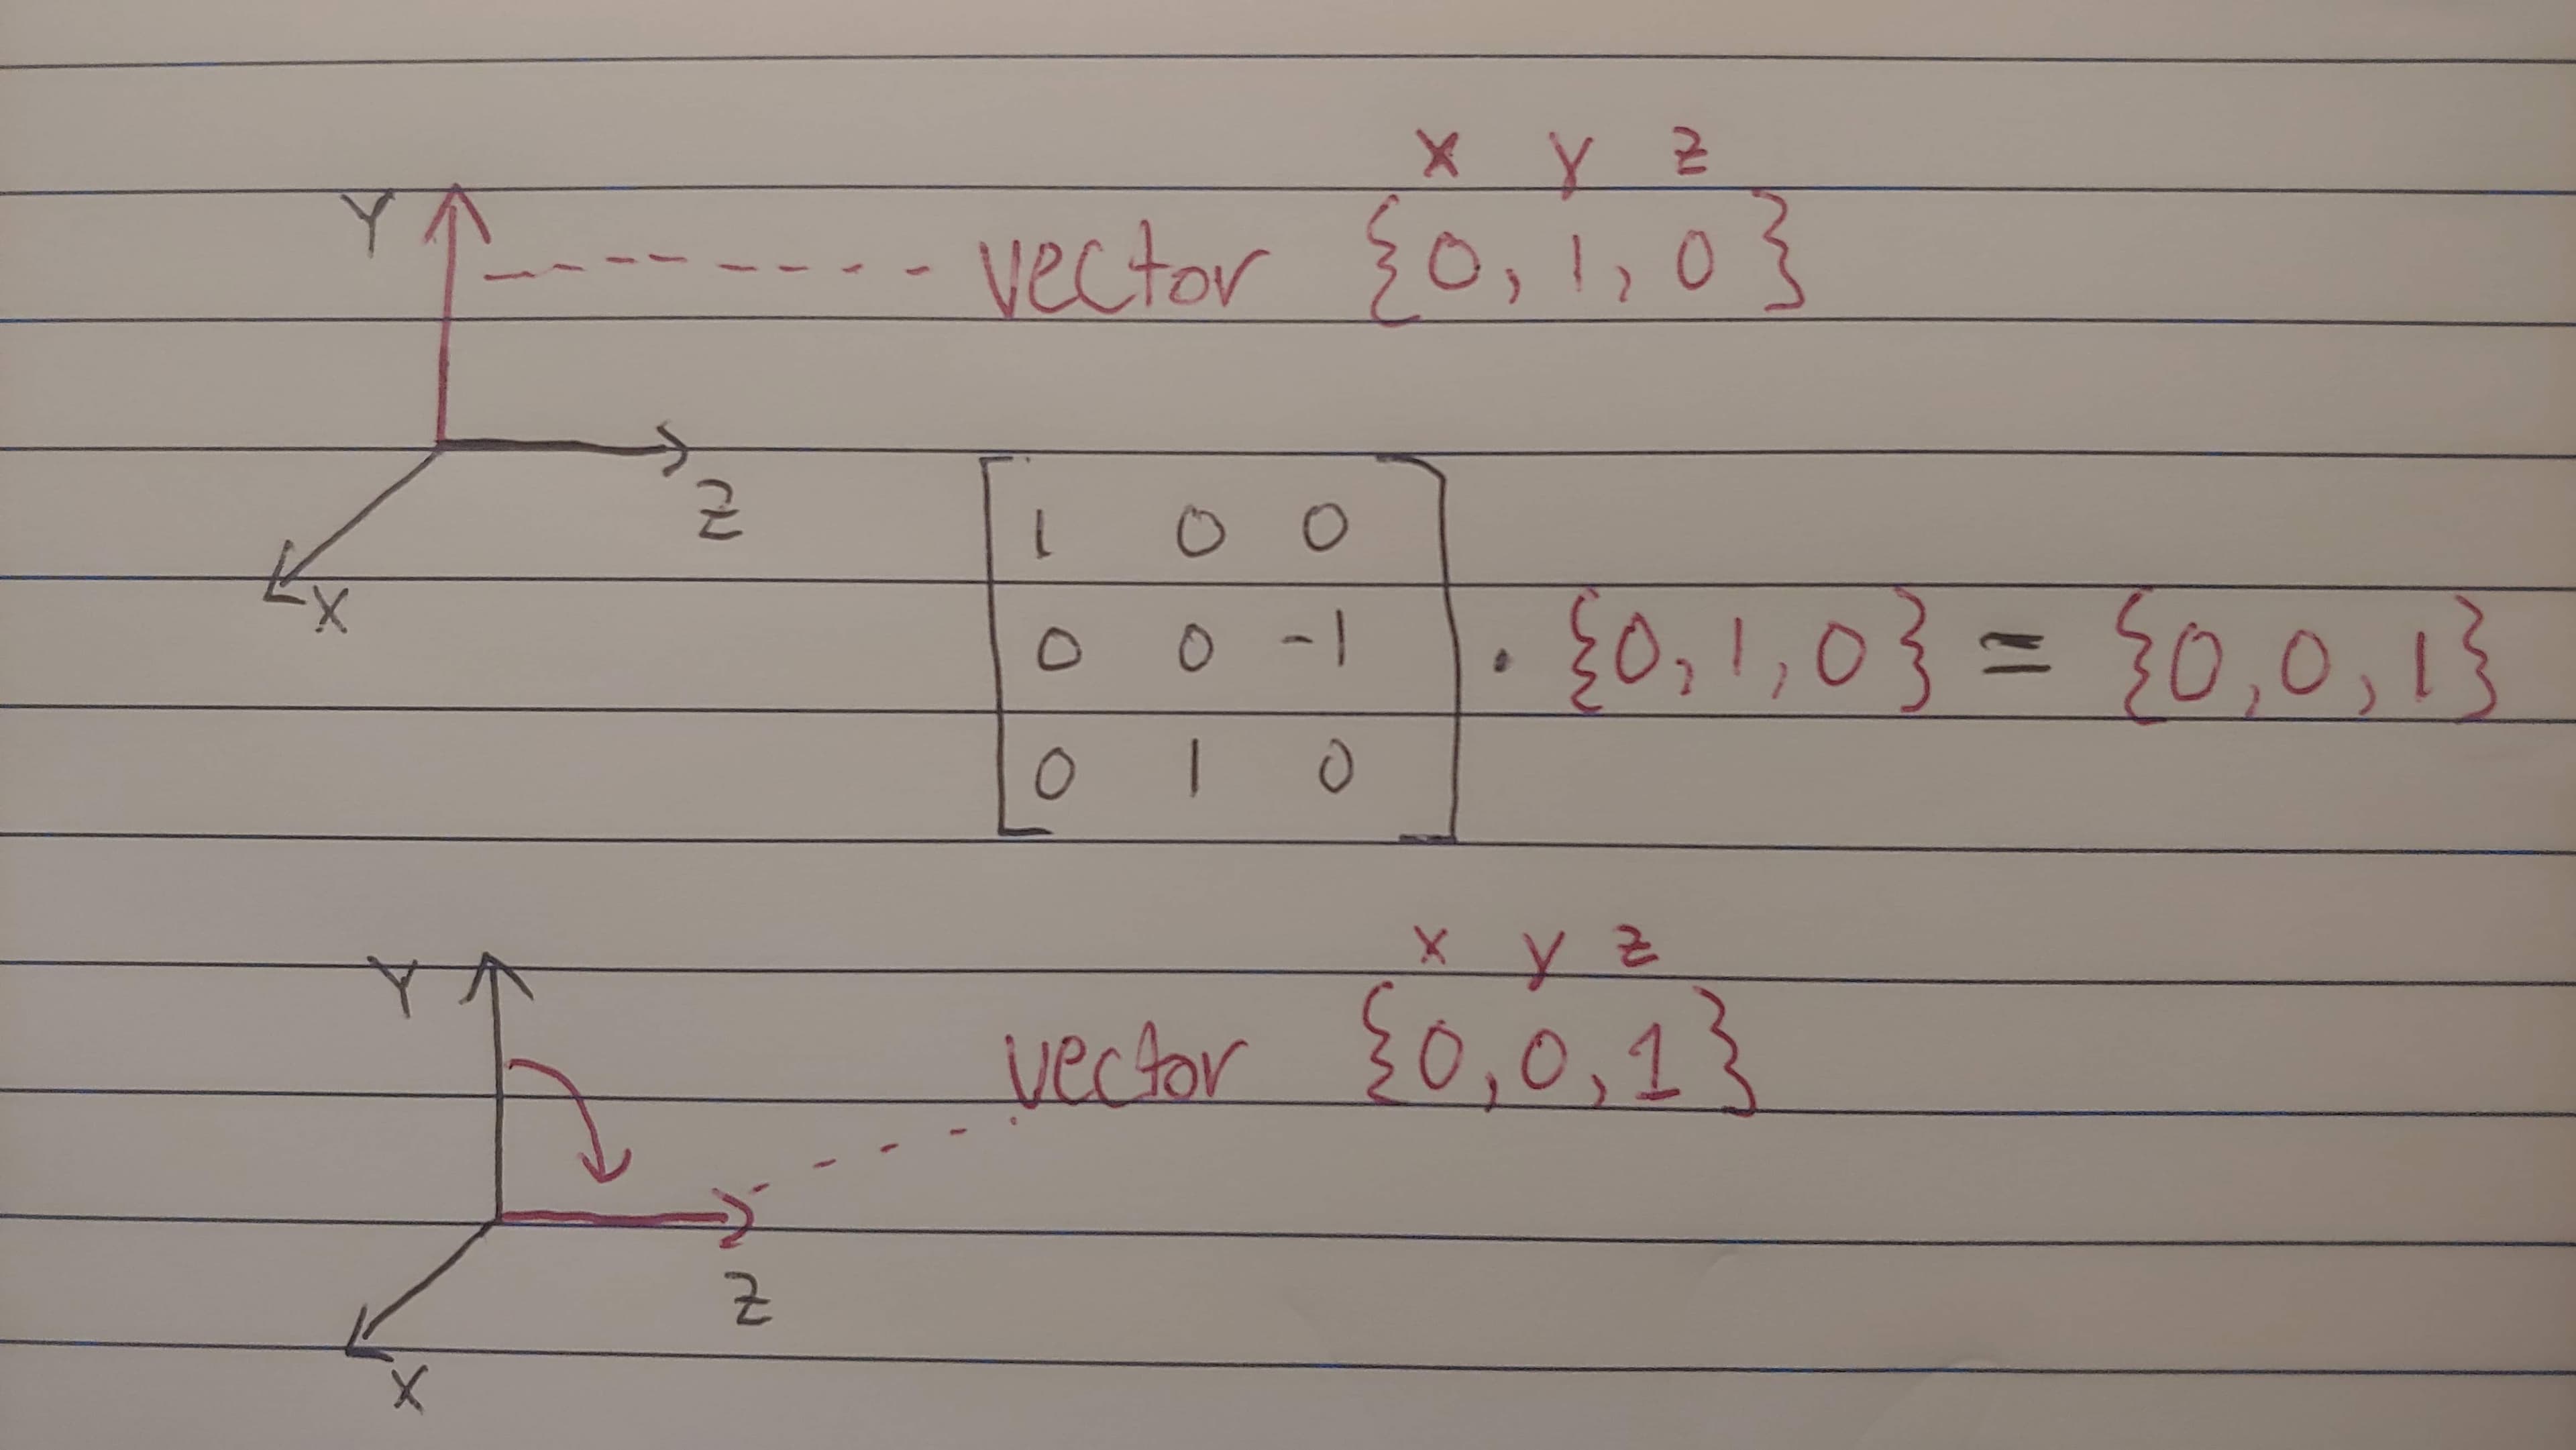 x y z
Y
vector {0, 1, 0}
Z
X
1 0 0
0 0 -1
0 1 0
· {0, 1, 0} = {0, 0, 1}
x y z
Y
vector {0, 0, 1}
Z
X